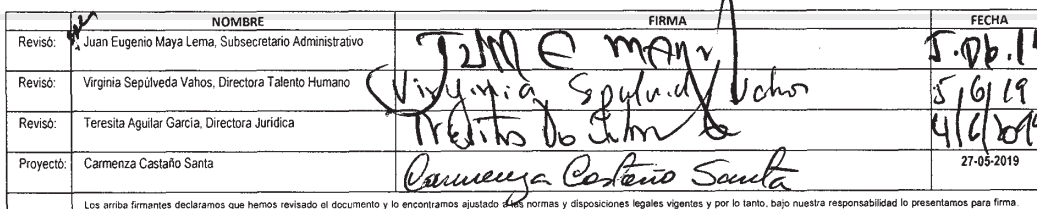 NOMBRE FIRMA FECHA
Revisó: Juan Eugenio Maya Lema, Subsecretario Administrativo
Revisó: Virginia Sepúlveda Vahos, Directora Talento Humano Virginia Sepulveda Vahos 5/6/19
Revisó: Teresita Aguilar García, Directora Jurídica 4/6/2019
Proyectó: Carmenza Castaño Santa Carmenza Castaño Santa 27-05-2019
Los arriba firmantes declaramos que hemos revisado el documento y lo encontramos ajustado a las normas y disposiciones legales vigentes y por lo tanto, bajo nuestra responsabilidad lo presentamos para firma.